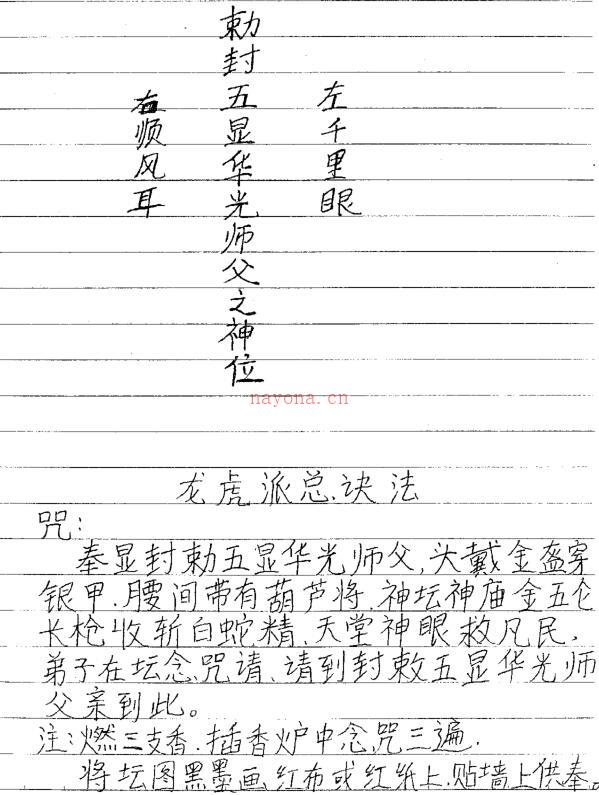 勅封五显华光师父之神位
左千里眼
右顺风耳
nayona.cn
龙虎派总诀法
咒:
奉显封勅五显华光师父,头戴金盔穿
银甲.腰间带有葫芦将.神坛神庙金五仑
长枪收斩白蛇精、天堂神眼救凡民,
弟子在坛念咒请、请到封敕五显华光师
父亲到此。
注:燃三支香.插香炉中念咒三遍.
将坛图黑墨画红布或红纸上.贴墙上供奉。